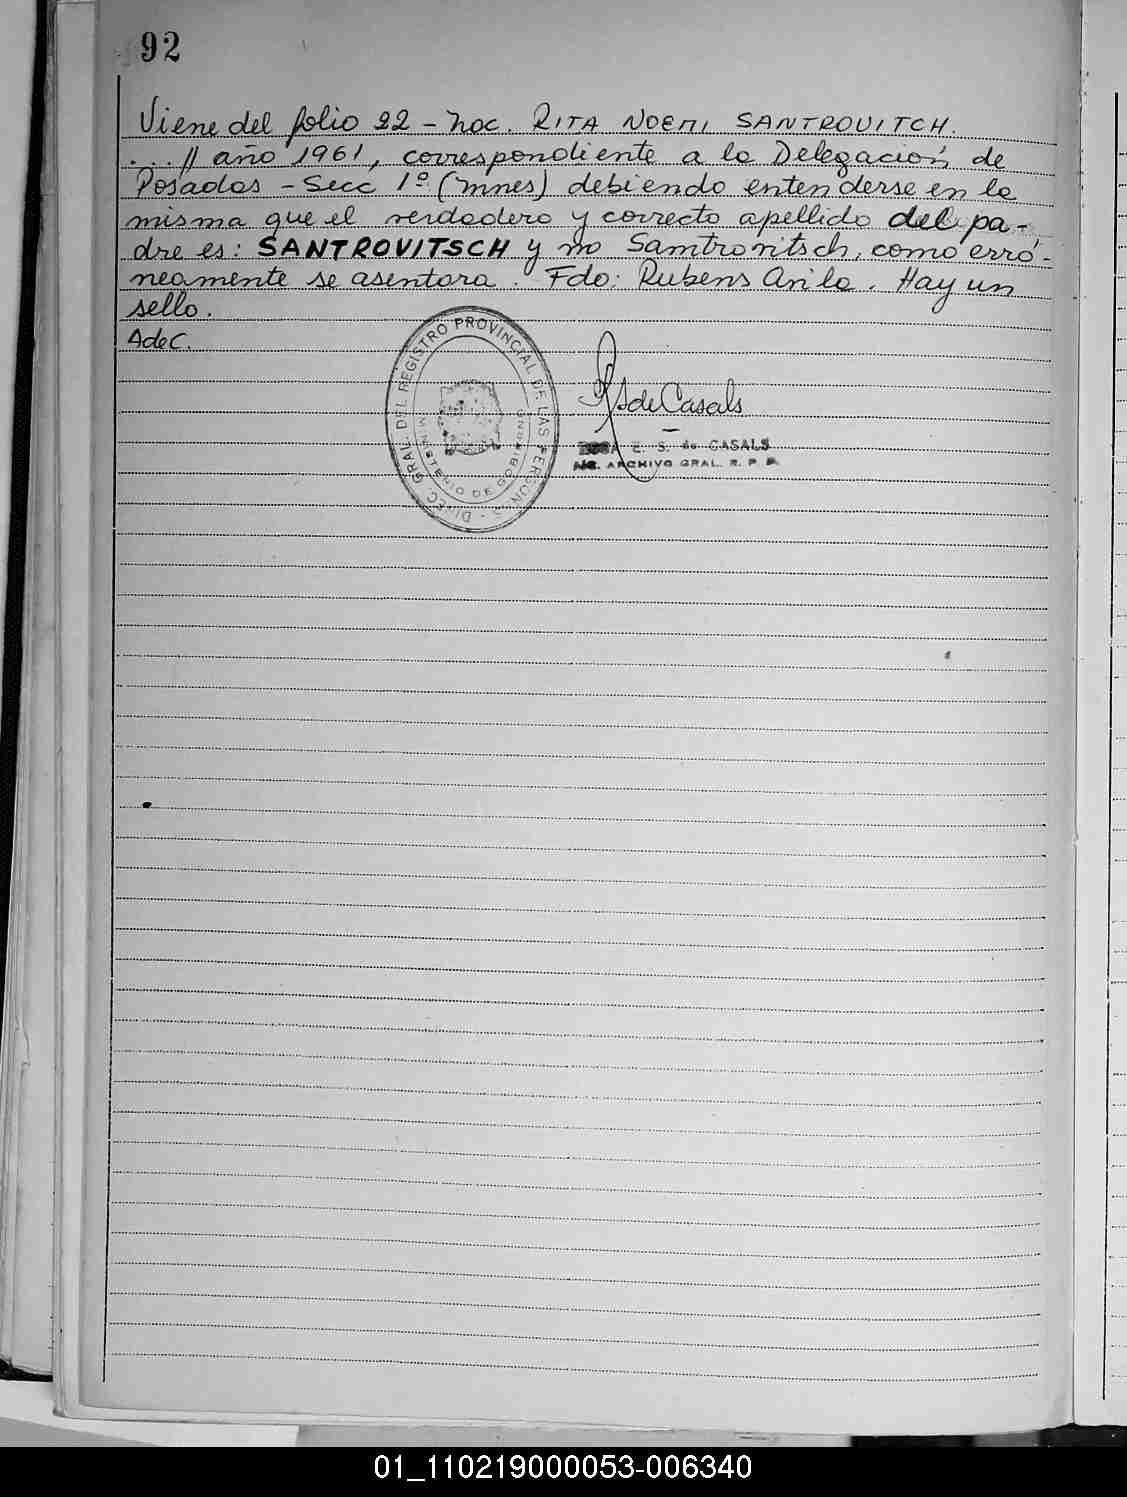 92
Viene del folio 22 - Noc. RITA NOEMI SANTROVITCH.
...// año 1961, correspondiente a la Delegación de
Posadas - Secc 1º (Mnes) debiendo entenderse en la
misma que el verdadero y correcto apellido del pa-
dre es: SANTROVITSCH y no Samtrovitsch, como erró-
neamente se asentara. Fdo: Rubens Avila. Hay un
sello.
AdeC.
DIREC. GRAL. DEL REGISTRO PROVINCIAL DE LAS PERSONAS
MINISTERIO DE GOBIERNO
RSdeCasals
E. S. de CASALS
ARCHIVO GRAL. R. P. P.
01_110219000053-006340